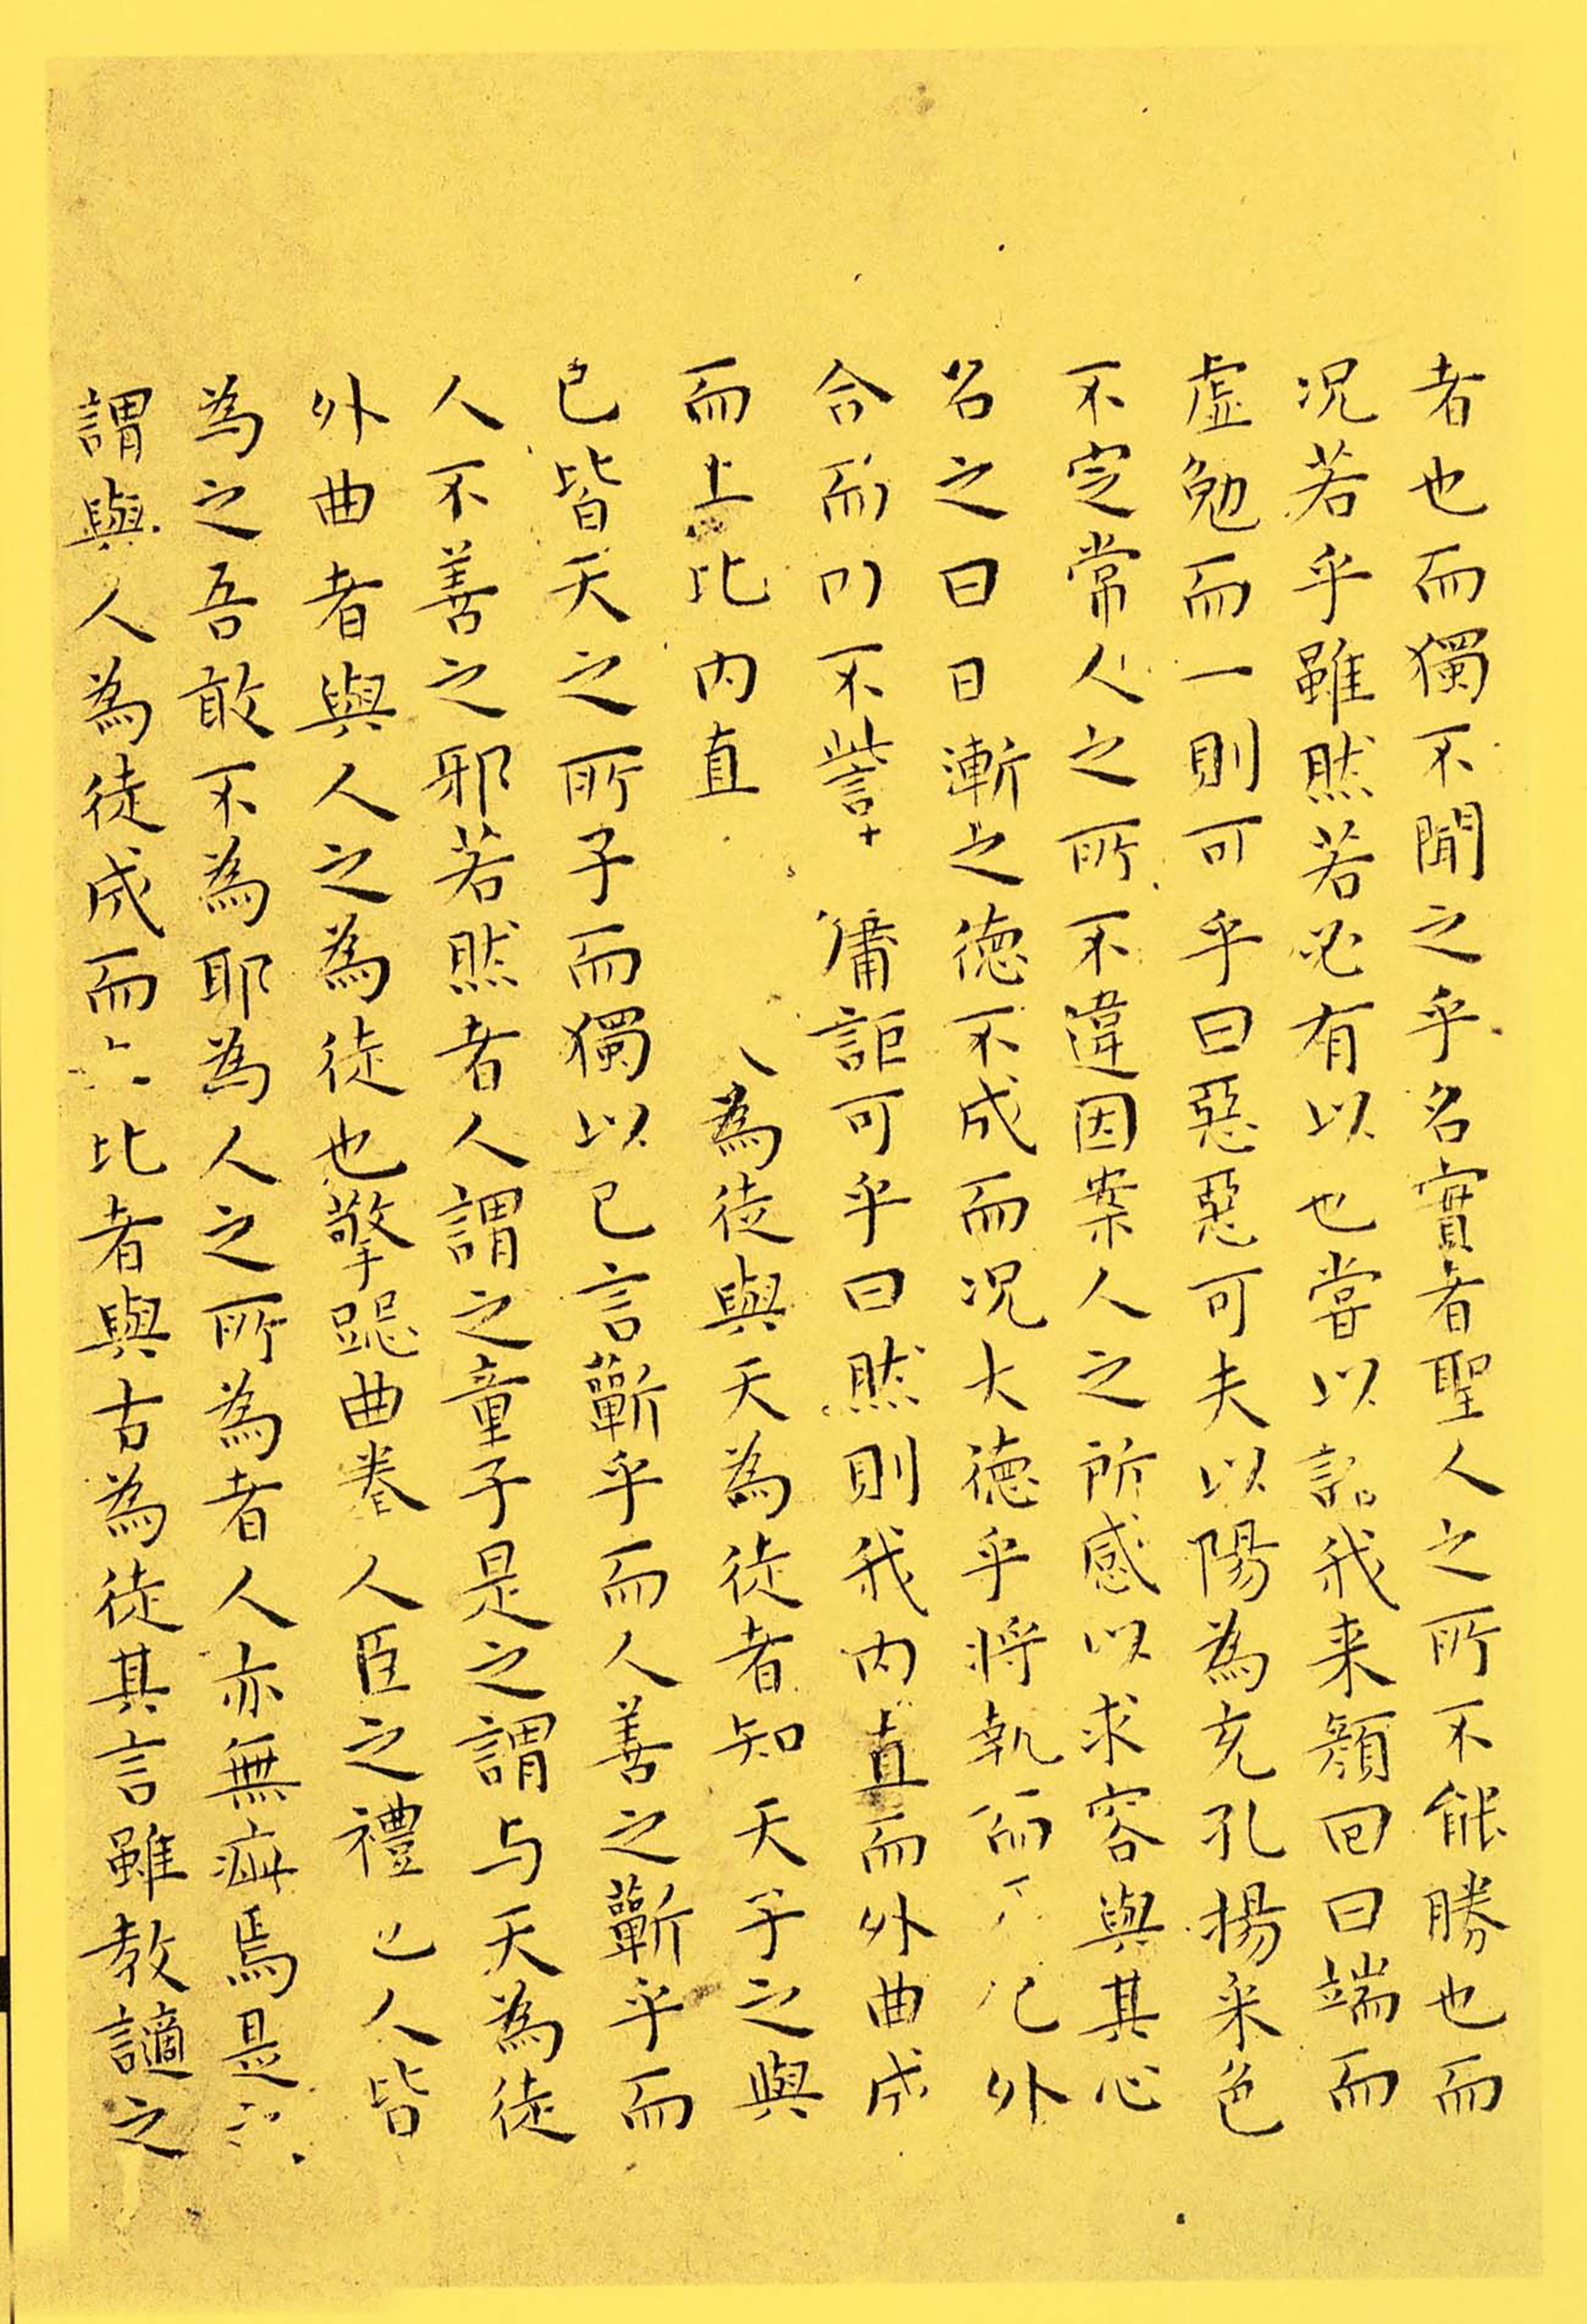 者也而獨不聞之乎名實者聖人之所不能勝也而
況若乎雖然若必有以也嘗以語我来顏回曰端而
虛勉而一則可乎曰惡惡可夫以陽為充孔揚采色
不定常人之所不違因案人之所感以求容與其心
名之曰日漸之德不成而況大德乎將執而不化外
合而内不訾其庸詎可乎曰然則我内直而外曲成
而上比内直為徒與天為徒者知天子之與
已皆天之所子而獨以已言蘄乎而人善之蘄乎而
人不善之邪若然者人謂之童子是之謂与天為徒
外曲者與人之為徒也擎跽曲拳人臣之禮也人皆
為之吾敢不為耶為人之所為者人亦無疵焉是之
謂與人為徒成而上比者與古為徒其言雖教讁之